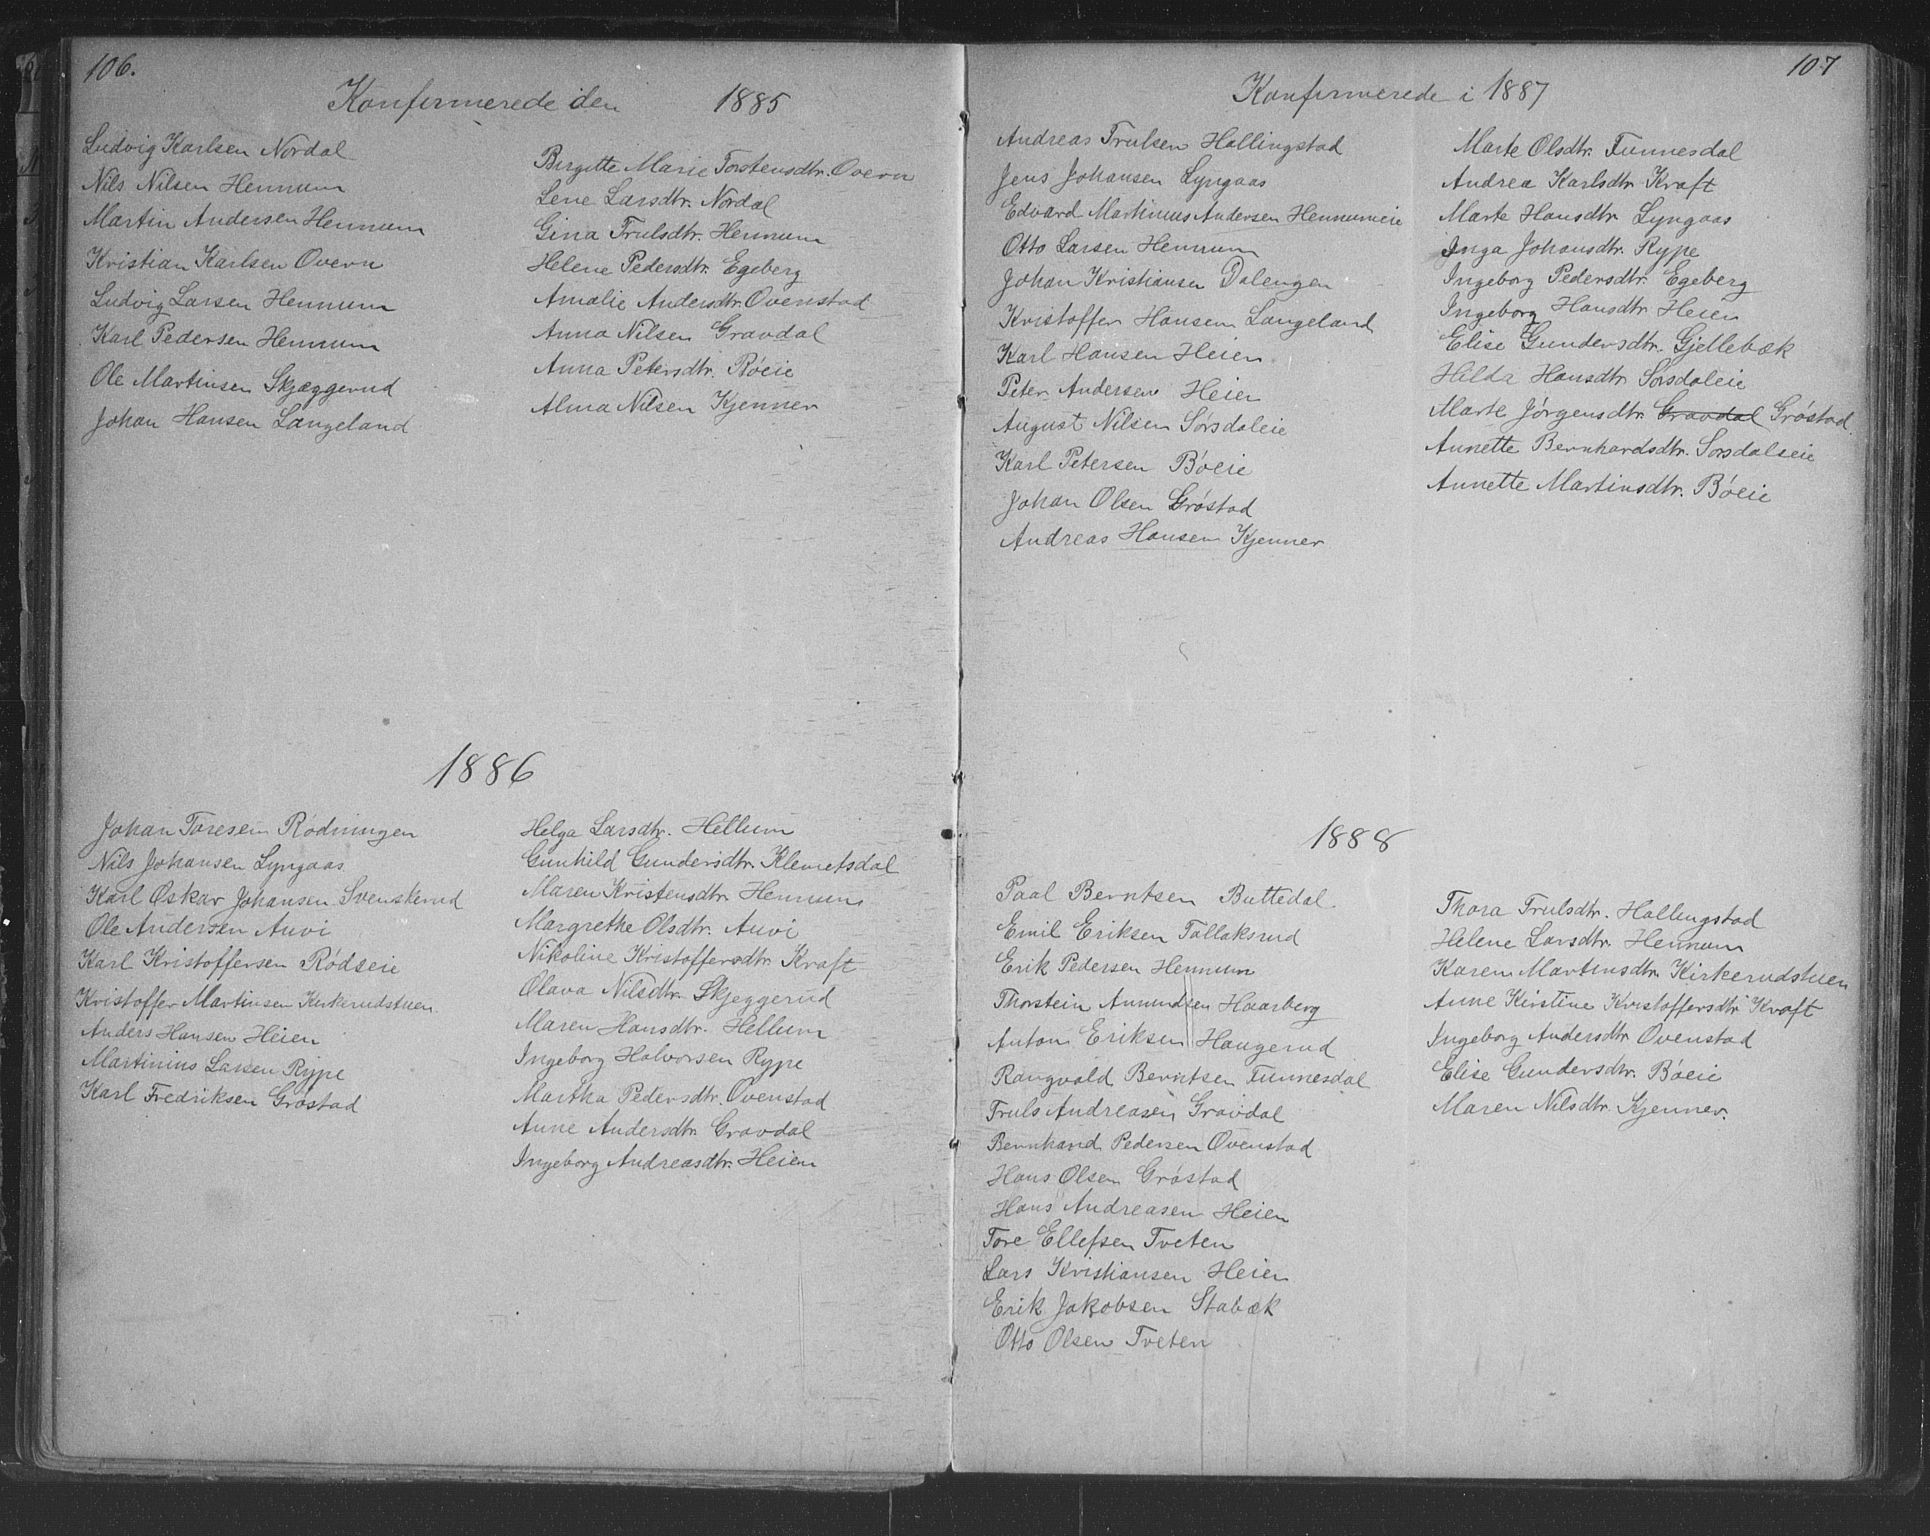 106.
Konfirmerede den 1885
Ludvig Karlsen Nordal
Nils Nilsen Hennum
Martin Andersen Hennum
Kristian Karlsen Overn
Ludvig Larsen Hennum
Karl Pedersen Hennum
Ole Martinsen Skjæggerud
Johan Hansen Langeland
Birgitte Marie Torstensdtr. Overn
Lene Larsdtr. Nordal
Gina Trulsdtr. Hennum
Helene Pedersdtr. Egeberg
Amalie Andersdtr. Ovenstad
Anna Nilsen Gravdal
Anna Petersdtr. Røeie
Alma Nilsen Kjenner
1886
Johan Toresen Rødningen
Nils Johansen Lyngaas
Karl Oskar Johansen Svenskerud
Ole Andersen Auvi
Karl Kristoffersen Rødseie
Kristoffer Martinsen Kirkerudstuen
Anders Hansen Heien
Martinius Larsen Rype
Karl Fredriksen Grøstad
Helga Larsdtr. Hellum
Gunhild Gundersdtr. Klemetsdal
Maren Kristensdtr. Hennum
Margrethe Olsdtr. Auvi
Nikoline Kristoffersdtr. Kraft
Olava Nilsdtr. Skjeggerud
Maren Hansdtr. Hellum
Ingeborg Halvorsen Rype
Martha Pedersdtr. Ovenstad
Anne Andersdtr. Gravdal
Ingeborg Andreasdtr. Heien
107
Konfirmerede i 1887
Andreas Trulsen Hallingstad
Jens Johansen Lyngaas
Edvard Martinius Andersen Hennumeie
Otto Larsen Hennum
Johan Kristiansen Dalengen
Kristoffer Hansen Langeland
Karl Hansen Heien
Peter Andersen Heien
August Nilsen Sørsdaleie
Karl Petersen Bøeie
Johan Olsen Grøstad
Andreas Hansen Kjenner
Marte Olsdtr. Tunnesdal
Andrea Karlsdtr. Kraft
Marte Hansdtr. Lyngaas
Inga Johansdtr. Rype
Ingeborg Pedersdtr. Egeberg
Ingeborg Hansdtr. Heien
Elise Gundersdtr. Gjellebæk
Hilda Hansdtr. Sørsdaleie
Marte Jørgensdtr. Gravdal Grøstad.
Annette Bernhardsdtr. Sørsdalseie
Annette Martinsdtr. Bøeie
1888
Paal Berntsen Buttedal.
Emil Eriksen Tallaksrud
Erik Pedersen Hennum
Thorstein Amundsen Haarberg
Anton Eriksen Haugerud
Rangvald Berntsen Tunnesdal
Truls Andreasen Gravdal
Bernhard Pedersen Ovenstad
Hans Olsen Grøstad
Hans Andreasen Heien
Tore Ellefsen Tveten
Lars Kristiansen Heien
Erik Jakobsen Stabæk
Otto Olsen Tveten
Thora Trulsdtr. Hallingstad
Helene Larsdtr. Hennum
Karen Martinsdtr. Kirkerudstuen
Anne Kirstine Kristoffersdtr. Kraft
Ingeborg Andersdtr. Ovenstad
Elise Gundersdtr. Bøeie
Maren Nilsdtr. Kjenner.